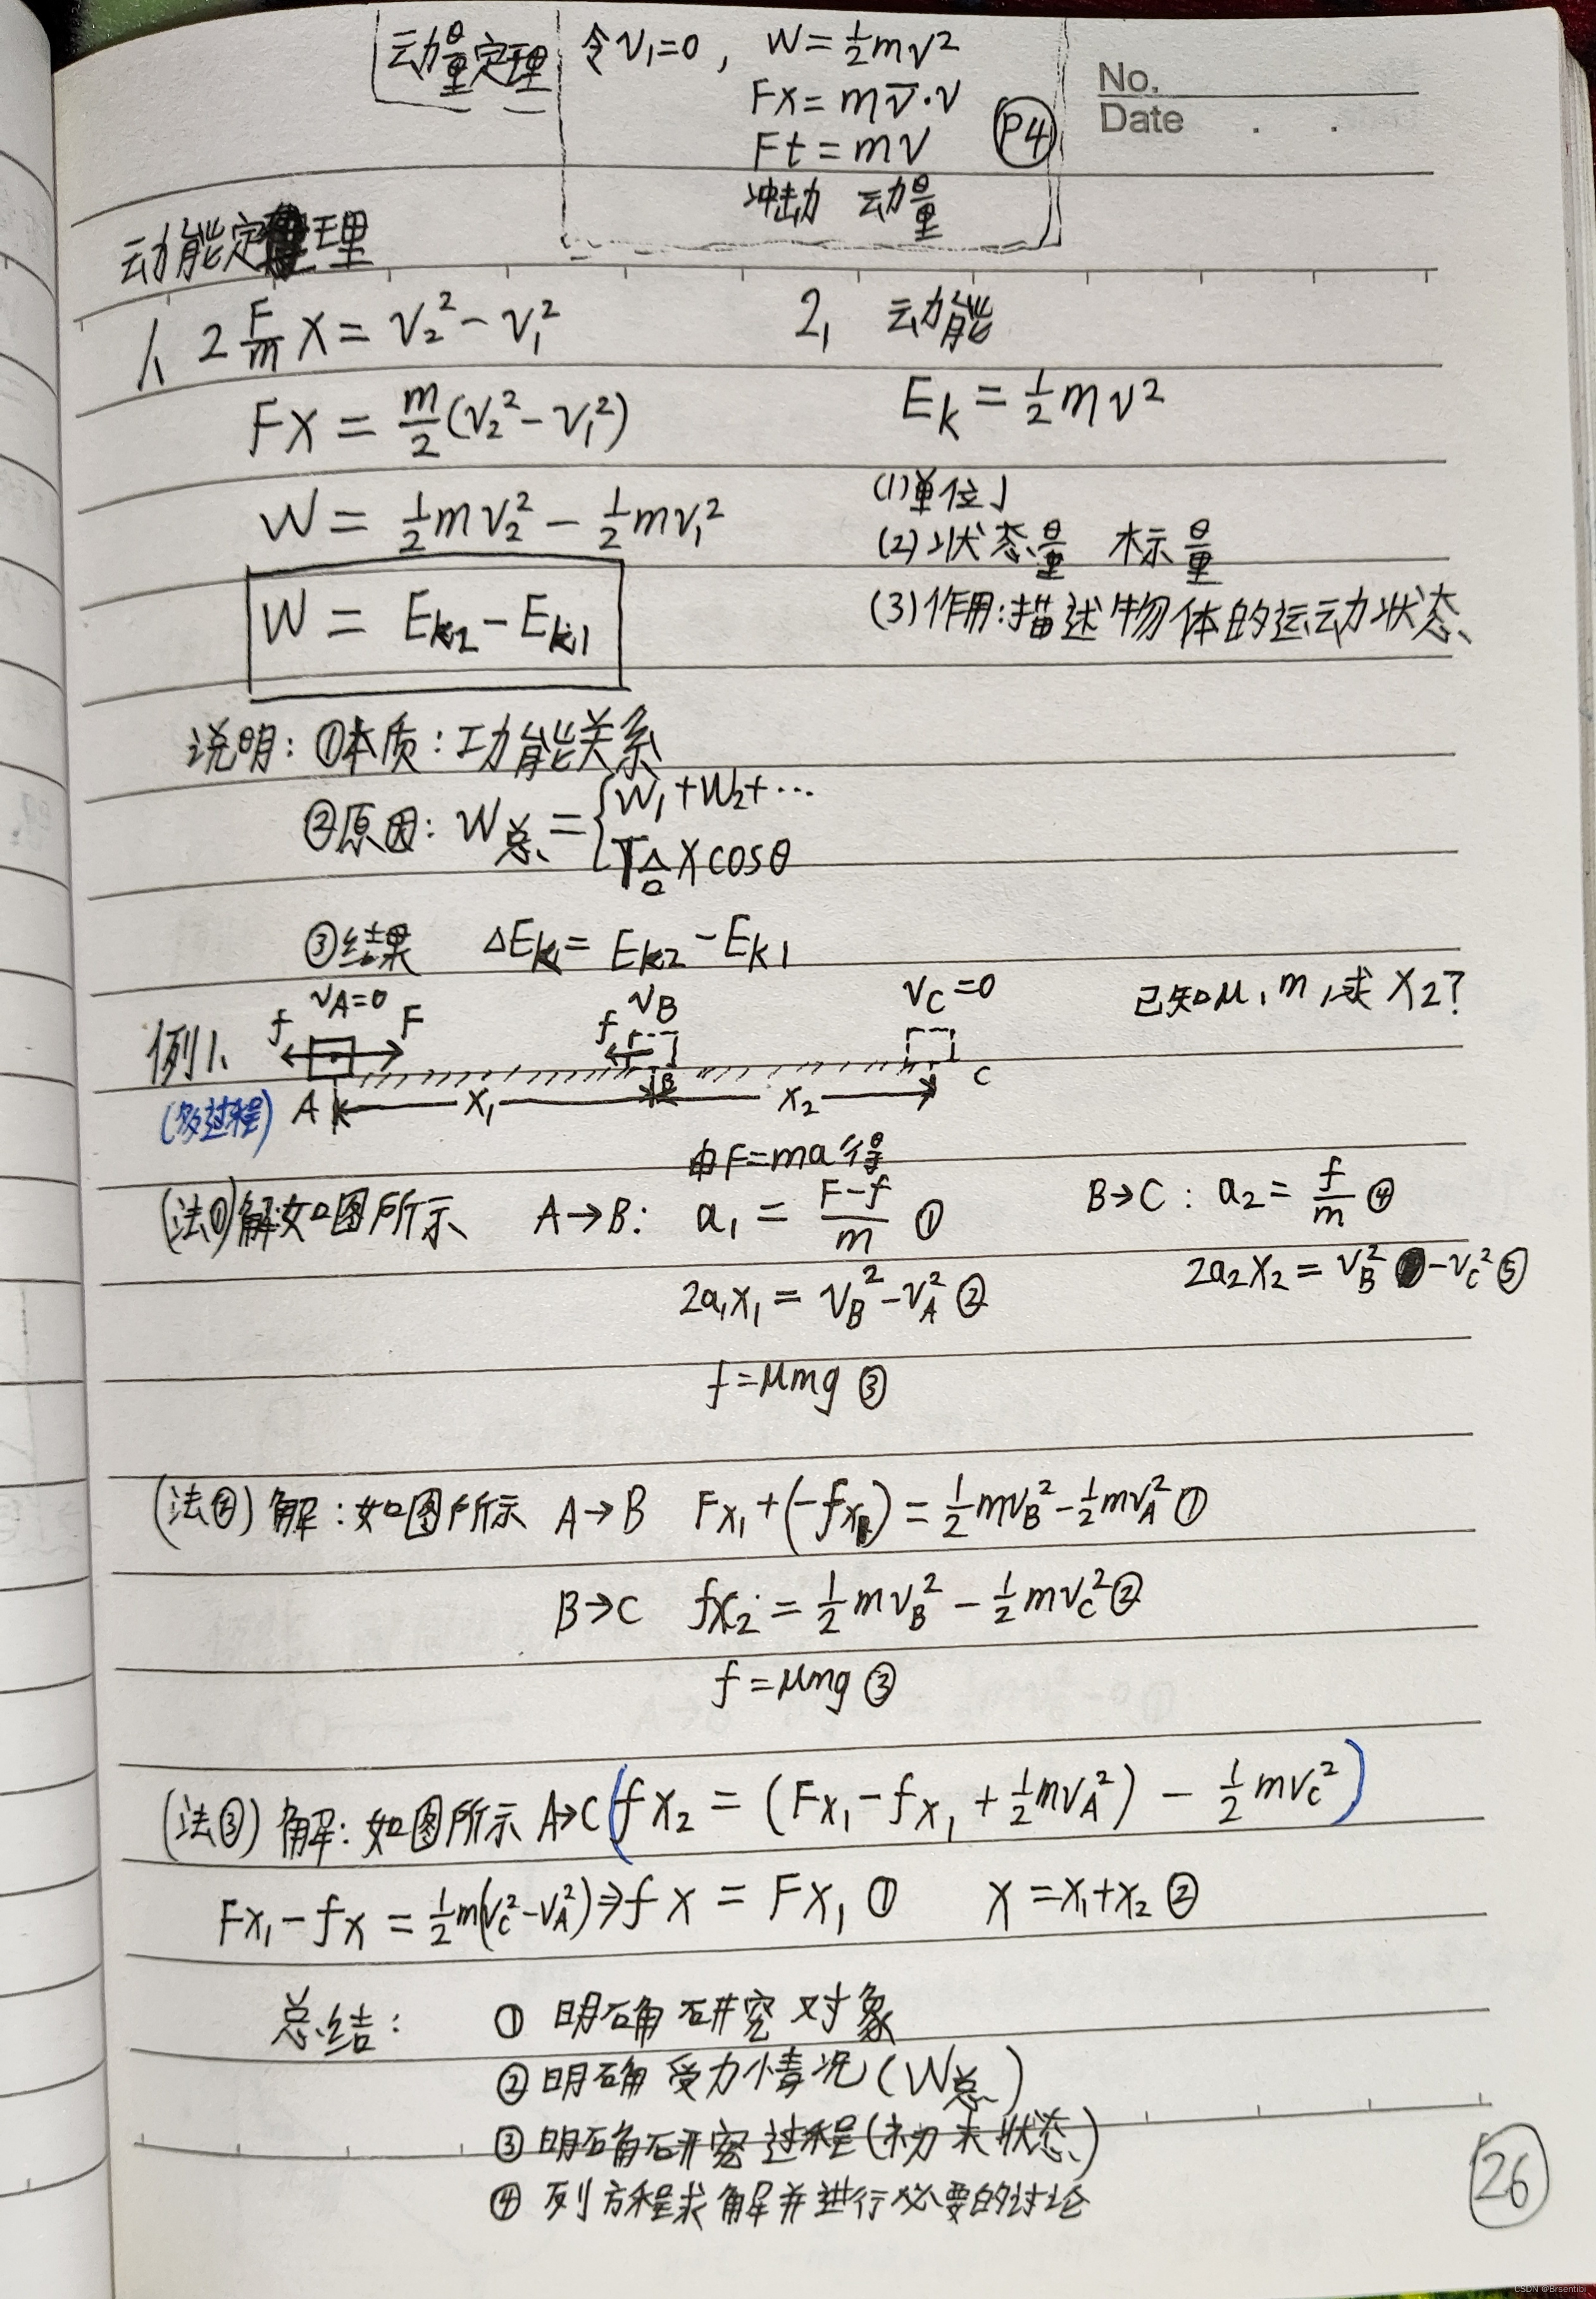 动量定理 令v₁=0, W=½mv²
Fx=mv̅·v
Ft=mv P4
冲动 动量
No.
Date . .
动能定理
1、2 F/m x = v₂² - v₁²
Fx = m/2 (v₂² - v₁²)
W = ½mv₂² - ½mv₁²
W = Ek₂ - Ek₁
2、动能
Ek = ½mv²
(1)单位J
(2)状态量 标量
(3)作用:描述物体的运动状态、
说明: ①本质:功能关系
②原因: W总 = { W₁+W₂+…
F合xcosθ
③结果 ΔEk = Ek₂ - Ek₁
例1、 f vA=0 F f vB vC=0 已知μ,m,求x₂?
(多过程) A x₁ B x₂ C
由F=ma得
(法①)解如图所示 A→B: a₁ = (F-f)/m ① B→C: a₂ = f/m ④
2a₁x₁ = vB² - vA² ② 2a₂x₂ = vB² - vC² ⑤
f=μmg ③
(法②)解:如图所示 A→B Fx₁+(-fx₁) = ½mvB² - ½mvA² ①
B→C fx₂ = ½mvB² - ½mvC² ②
f=μmg ③
(法③)解:如图所示 A→C (fx₂ = (Fx₁-fx₁+½mvA²) - ½mvC²)
Fx₁-fx = ½m(vC²-vA²) ⇒ fx = Fx₁ ① x=x₁+x₂ ②
总结: ① 明确研究对象
② 明确受力情况(W总)
③ 明确研究过程(初末状态)
④ 列方程求解并进行必要的讨论
26
CSDN @Brsentibi